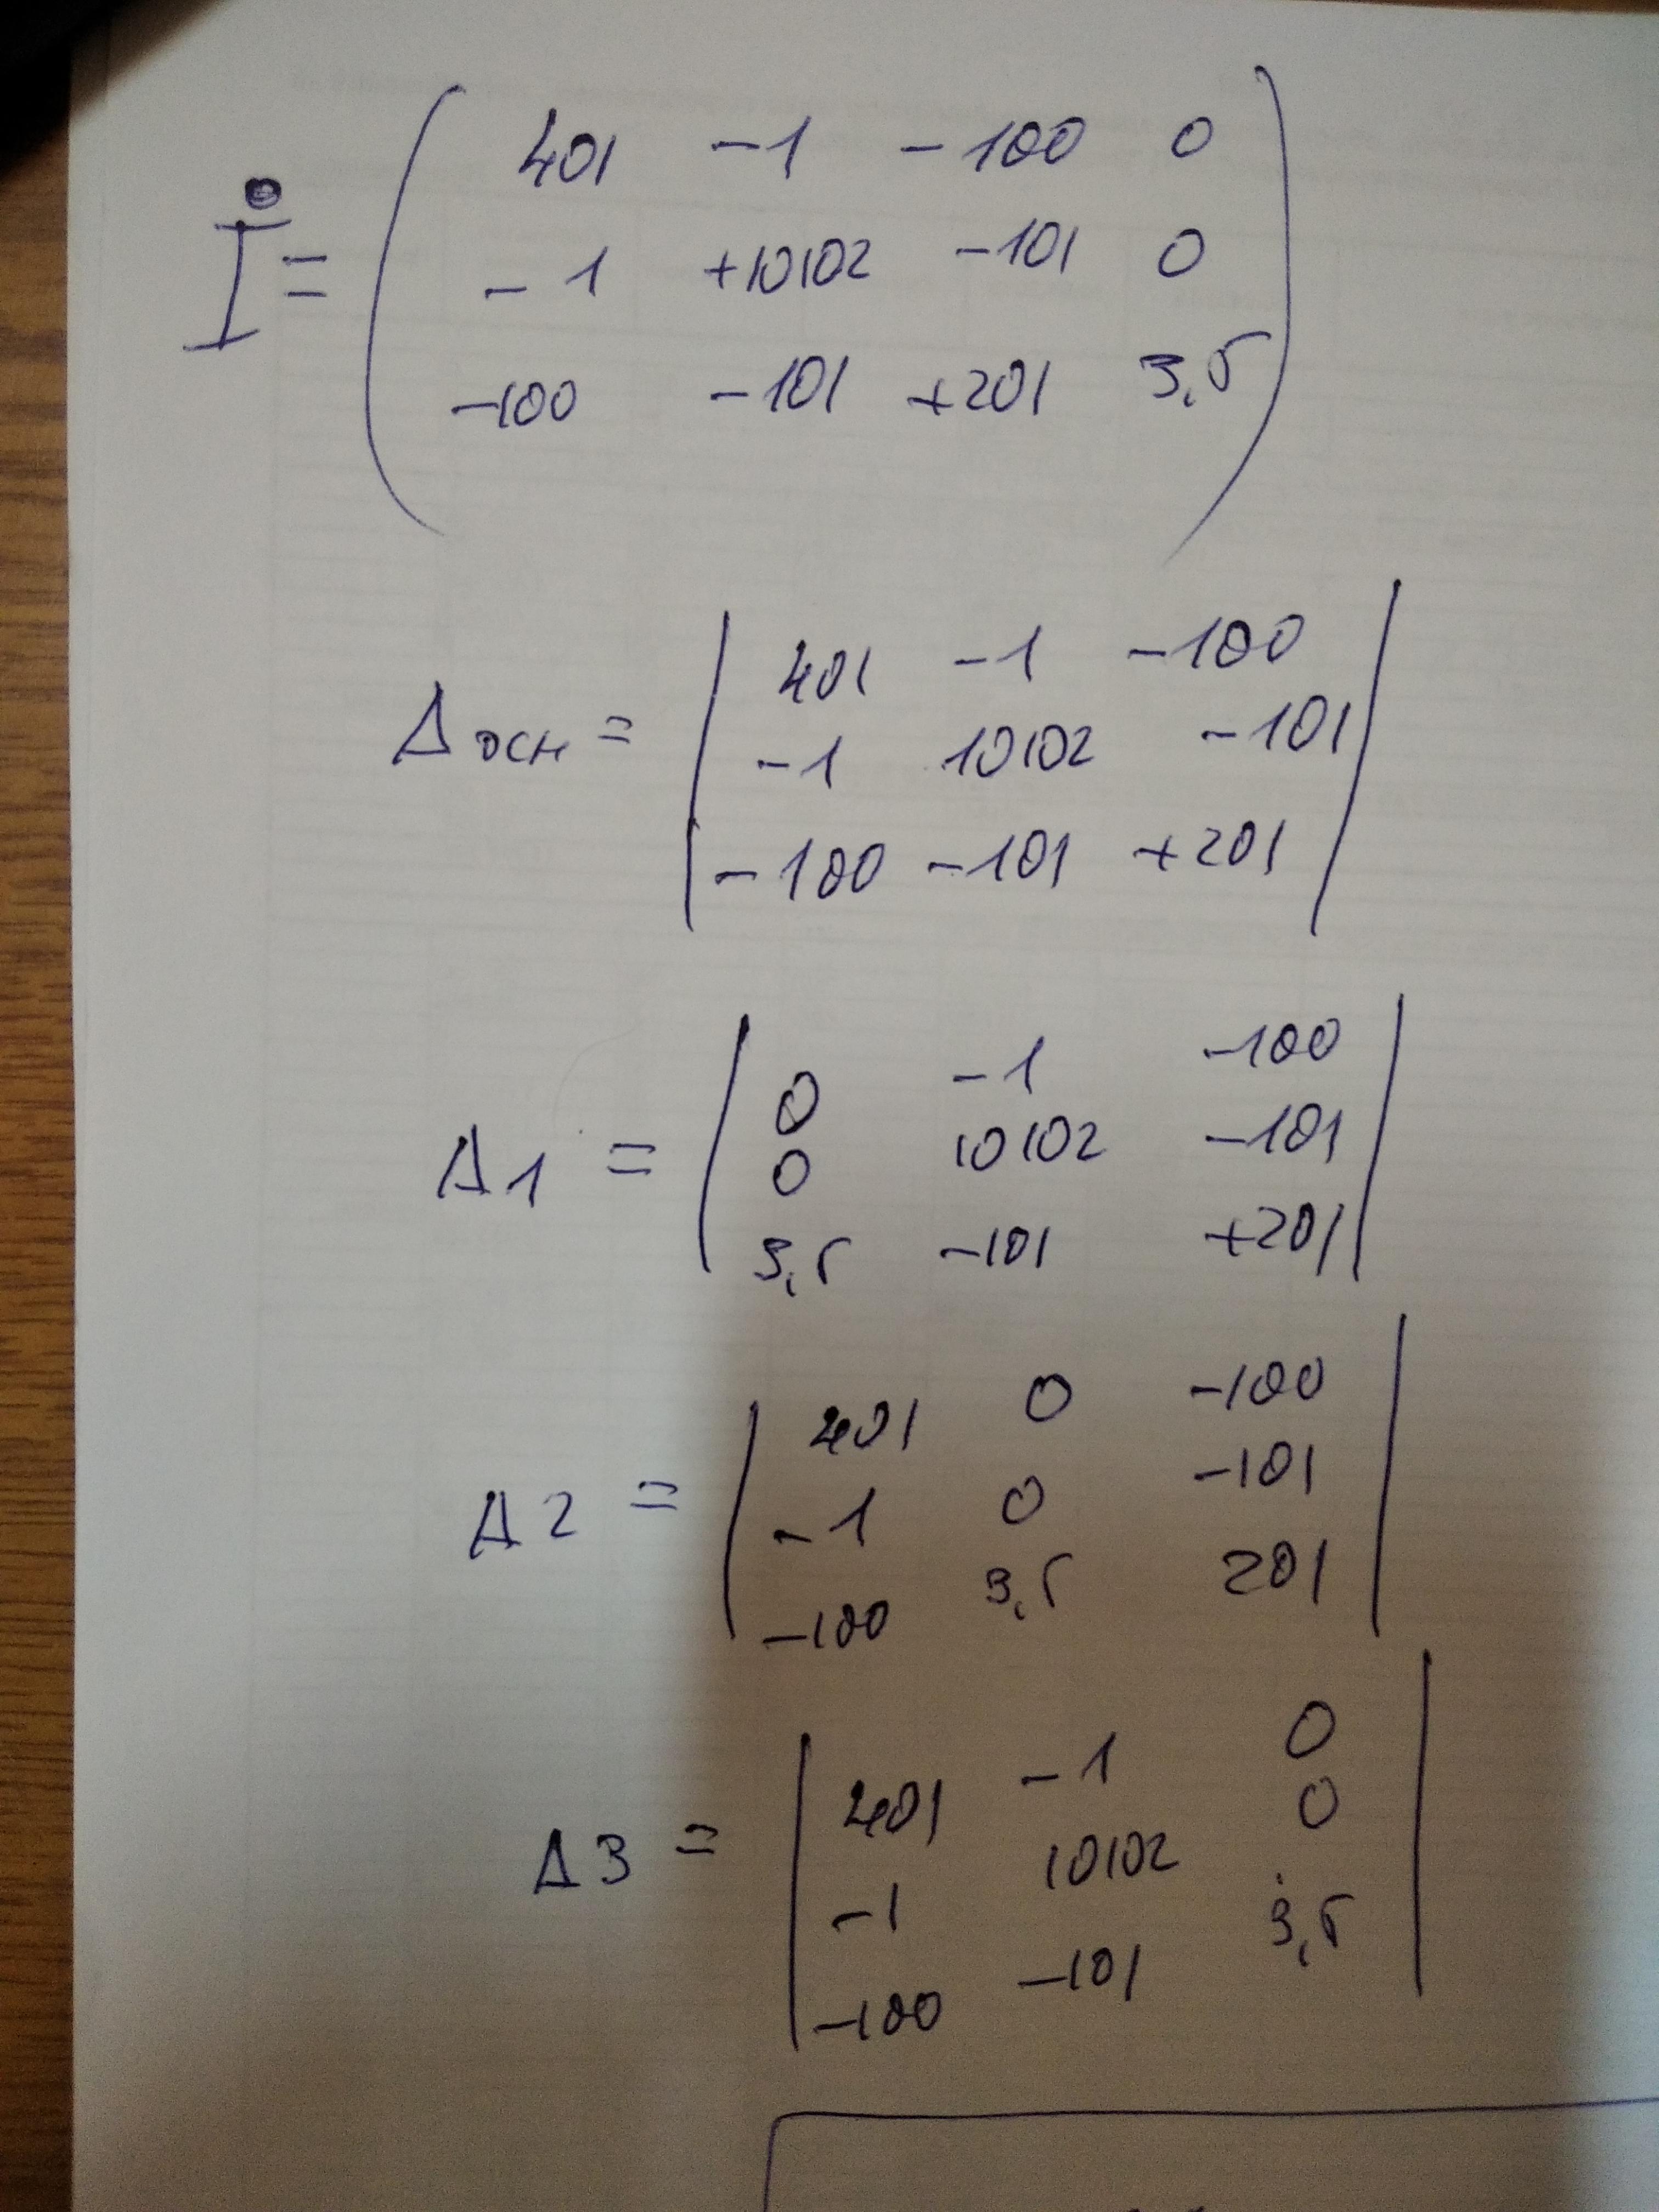 401 -1 -100 0
İ =
-1 +10102 -101 0
-100 -101 +201 3,5
401 -1 -100
Δосн = -1 10102 -101
-100 -101 +201
0 -1 -100
Δ1 = 0 10102 -101
3,5 -101 +201
401 0 -100
Δ2 = -1 0 -101
-100 3,5 201
401 -1 0
Δ3 = -1 10102 0
-100 -101 3,5